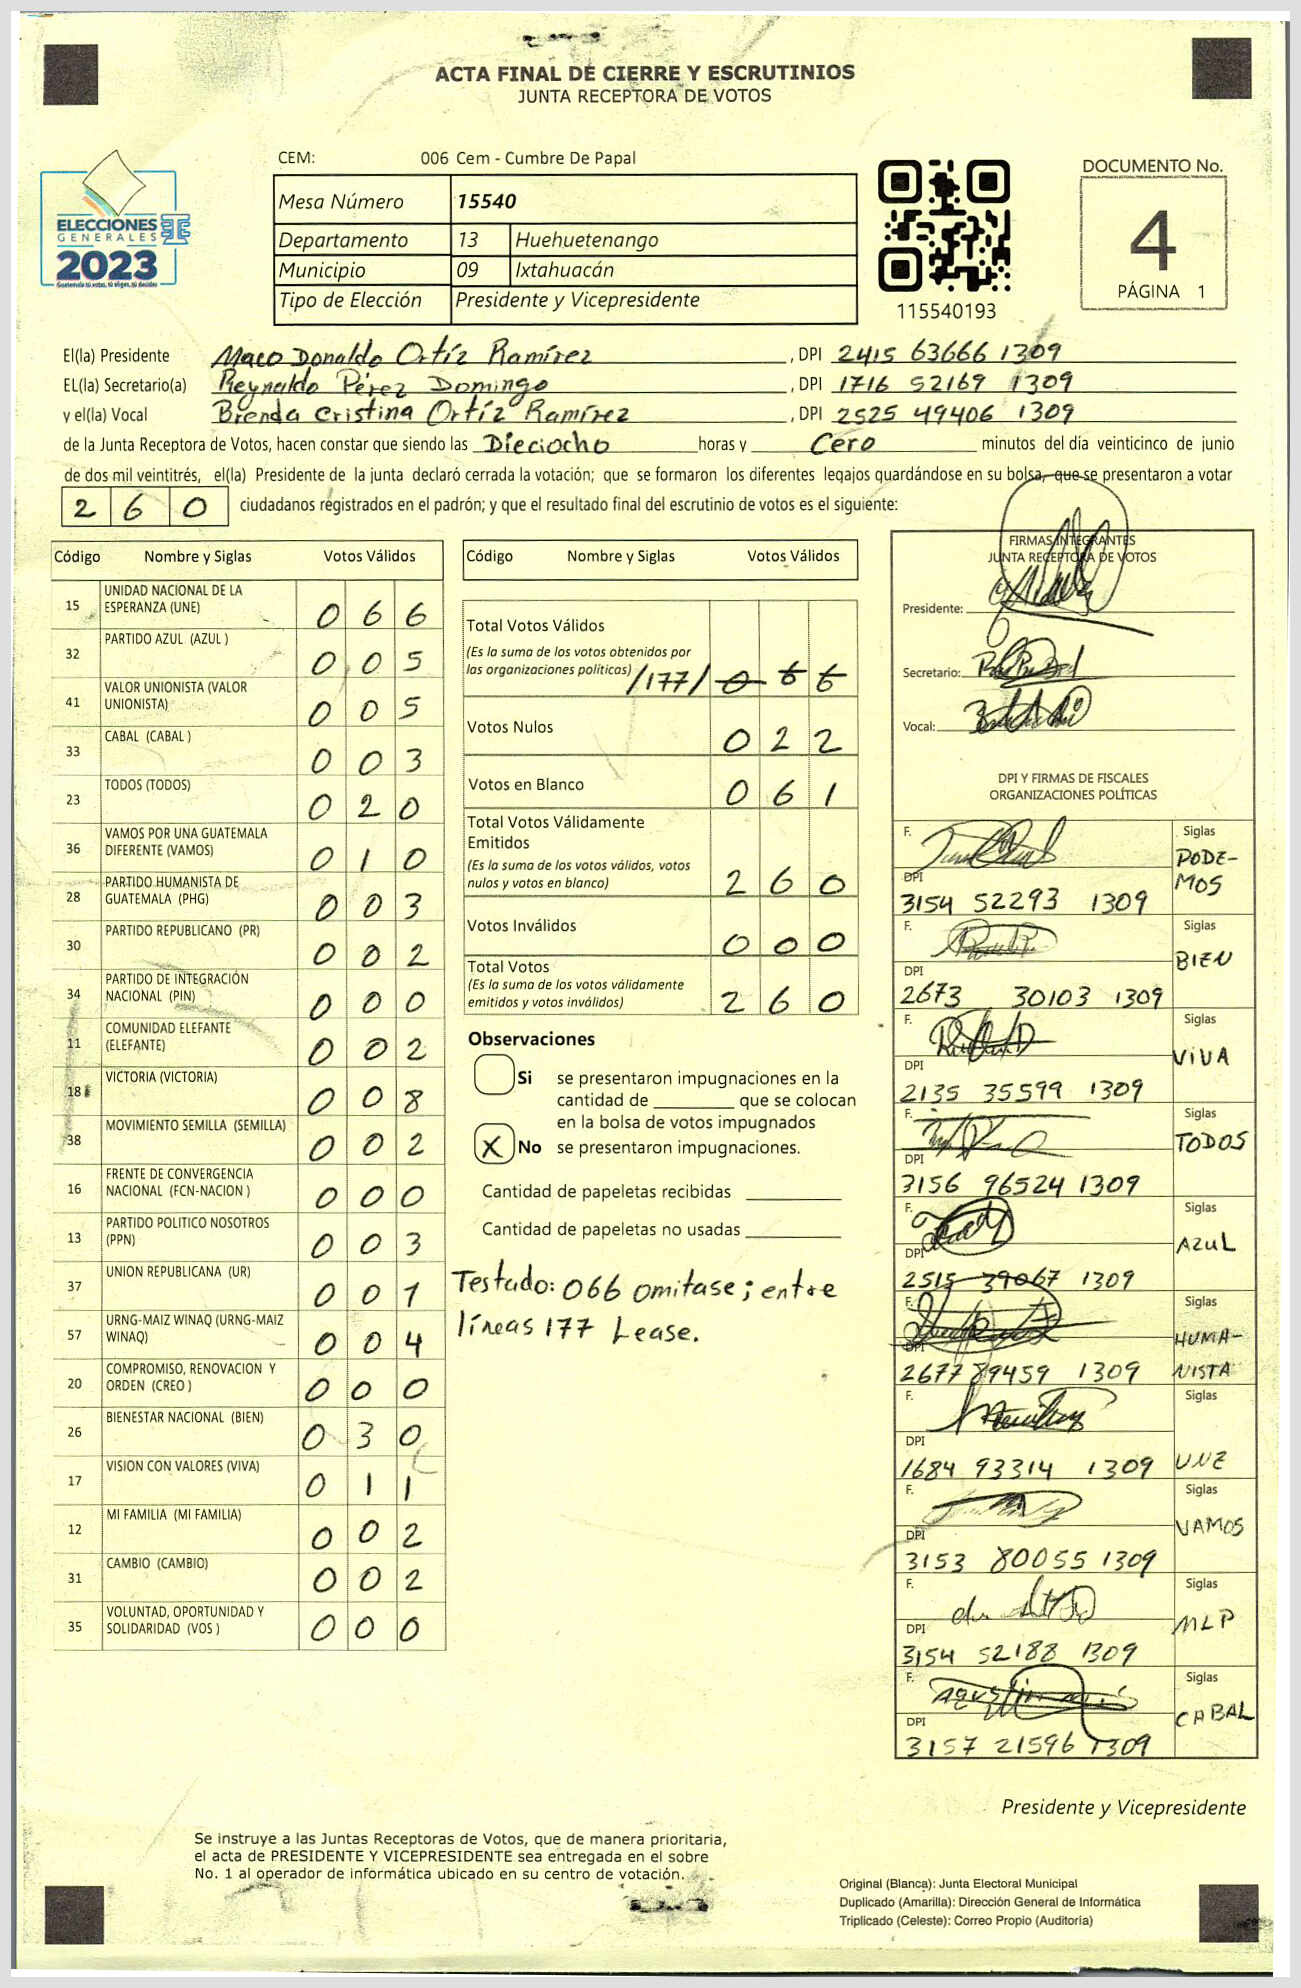 ACTA FINAL DE CIERRE Y ESCRUTINIOS
JUNTA RECEPTORA DE VOTOS
CEM: 006 Cem - Cumbre De Papal
DOCUMENTO No.
4
PÁGINA 1
ELECCIONES
GENERALES
2023
Guatemala tú votas, tú eliges, tú decides
Mesa Número 15540
Departamento 13 Huehuetenango
Municipio 09 Ixtahuacán
Tipo de Elección Presidente y Vicepresidente
115540193
El(la) Presidente Maco Donaldo Ortíz Ramírez, DPI 2415 63666 1309
EL(la) Secretario(a) Reynaldo Pérez Domingo, DPI 1716 52169 1309
y el(la) Vocal Brenda Cristina Ortíz Ramírez, DPI 2525 49406 1309
de la Junta Receptora de Votos, hacen constar que siendo las Dieciocho horas y Cero minutos del día veinticinco de junio
de dos mil veintitrés, el(la) Presidente de la junta declaró cerrada la votación; que se formaron los diferentes legajos guardándose en su bolsa, que se presentaron a votar
260 ciudadanos registrados en el padrón; y que el resultado final del escrutinio de votos es el siguiente:
Código Nombre y Siglas Votos Válidos
15 UNIDAD NACIONAL DE LA
ESPERANZA (UNE) 066
32 PARTIDO AZUL (AZUL ) 005
41 VALOR UNIONISTA (VALOR
UNIONISTA) 005
33 CABAL (CABAL ) 003
23 TODOS (TODOS) 020
36 VAMOS POR UNA GUATEMALA
DIFERENTE (VAMOS) 010
28 PARTIDO HUMANISTA DE
GUATEMALA (PHG) 003
30 PARTIDO REPUBLICANO (PR) 002
34 PARTIDO DE INTEGRACIÓN
NACIONAL (PIN) 000
11 COMUNIDAD ELEFANTE
(ELEFANTE) 002
18 VICTORIA (VICTORIA) 008
38 MOVIMIENTO SEMILLA (SEMILLA) 002
16 FRENTE DE CONVERGENCIA
NACIONAL (FCN-NACION ) 000
13 PARTIDO POLITICO NOSOTROS
(PPN) 003
37 UNION REPUBLICANA (UR) 001
57 URNG-MAIZ WINAQ (URNG-MAIZ
WINAQ) 004
20 COMPROMISO, RENOVACION Y
ORDEN (CREO ) 000
26 BIENESTAR NACIONAL (BIEN) 030
17 VISION CON VALORES (VIVA) 011
12 MI FAMILIA (MI FAMILIA) 002
31 CAMBIO (CAMBIO) 002
35 VOLUNTAD, OPORTUNIDAD Y
SOLIDARIDAD (VOS ) 000
Código Nombre y Siglas Votos Válidos
Total Votos Válidos
(Es la suma de los votos obtenidos por
las organizaciones políticas) /177/ 066
Votos Nulos 022
Votos en Blanco 061
Total Votos Válidamente
Emitidos
(Es la suma de los votos válidos, votos
nulos y votos en blanco) 260
Votos Inválidos 000
Total Votos
(Es la suma de los votos válidamente
emitidos y votos inválidos) 260
Observaciones
Si se presentaron impugnaciones en la
cantidad de ________ que se colocan
en la bolsa de votos impugnados
X No se presentaron impugnaciones.
Cantidad de papeletas recibidas
Cantidad de papeletas no usadas
Testado: 066 omitase; entre
líneas 177 Lease.
FIRMAS INTEGRANTES
JUNTA RECEPTORA DE VOTOS
Presidente:
Secretario:
Vocal:
DPI Y FIRMAS DE FISCALES
ORGANIZACIONES POLÍTICAS
F. Siglas
PODE-
MOS
DPI
3154 52293 1309
F. Siglas
BIEN
DPI
2673 30103 1309
F. Siglas
VIVA
DPI
2135 35599 1309
F. Siglas
TODOS
DPI
3156 96524 1309
F. Siglas
AZUL
DPI
2515 39067 1309
F. Siglas
HUMA-
NISTA
DPI
2677 89459 1309
F. Siglas
DPI
1684 93314 1309 UNE
F. Siglas
VAMOS
DPI
3153 80055 1309
F. Siglas
MLP
DPI
3154 52188 1309
F. Siglas
CABAL
DPI
3157 21596 1309
Presidente y Vicepresidente
Se instruye a las Juntas Receptoras de Votos, que de manera prioritaria,
el acta de PRESIDENTE Y VICEPRESIDENTE sea entregada en el sobre
No. 1 al operador de informática ubicado en su centro de votación.
Original (Blanca): Junta Electoral Municipal
Duplicado (Amarilla): Dirección General de Informática
Triplicado (Celeste): Correo Propio (Auditoría)